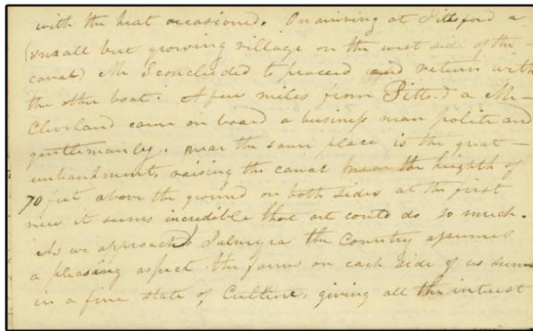 with the heat occasioned. On arriving at Pittsford a
(small but growing village on the west side of the
canal) Mr S concluded to proceed and return with
the other boat. A few miles from Pittsd a Mr
Cleveland came on board a business man polite and
gentlemanly. near the same place is the great
embankments raising the canal near the heighth of
70 feet above the ground on both sides at the first
view it seems incredible that art could do so much.
As we approach Palmyra the Country assumes
a pleasing aspect the farms on each side of us seems
in a fine state of Culture, giving all the interest